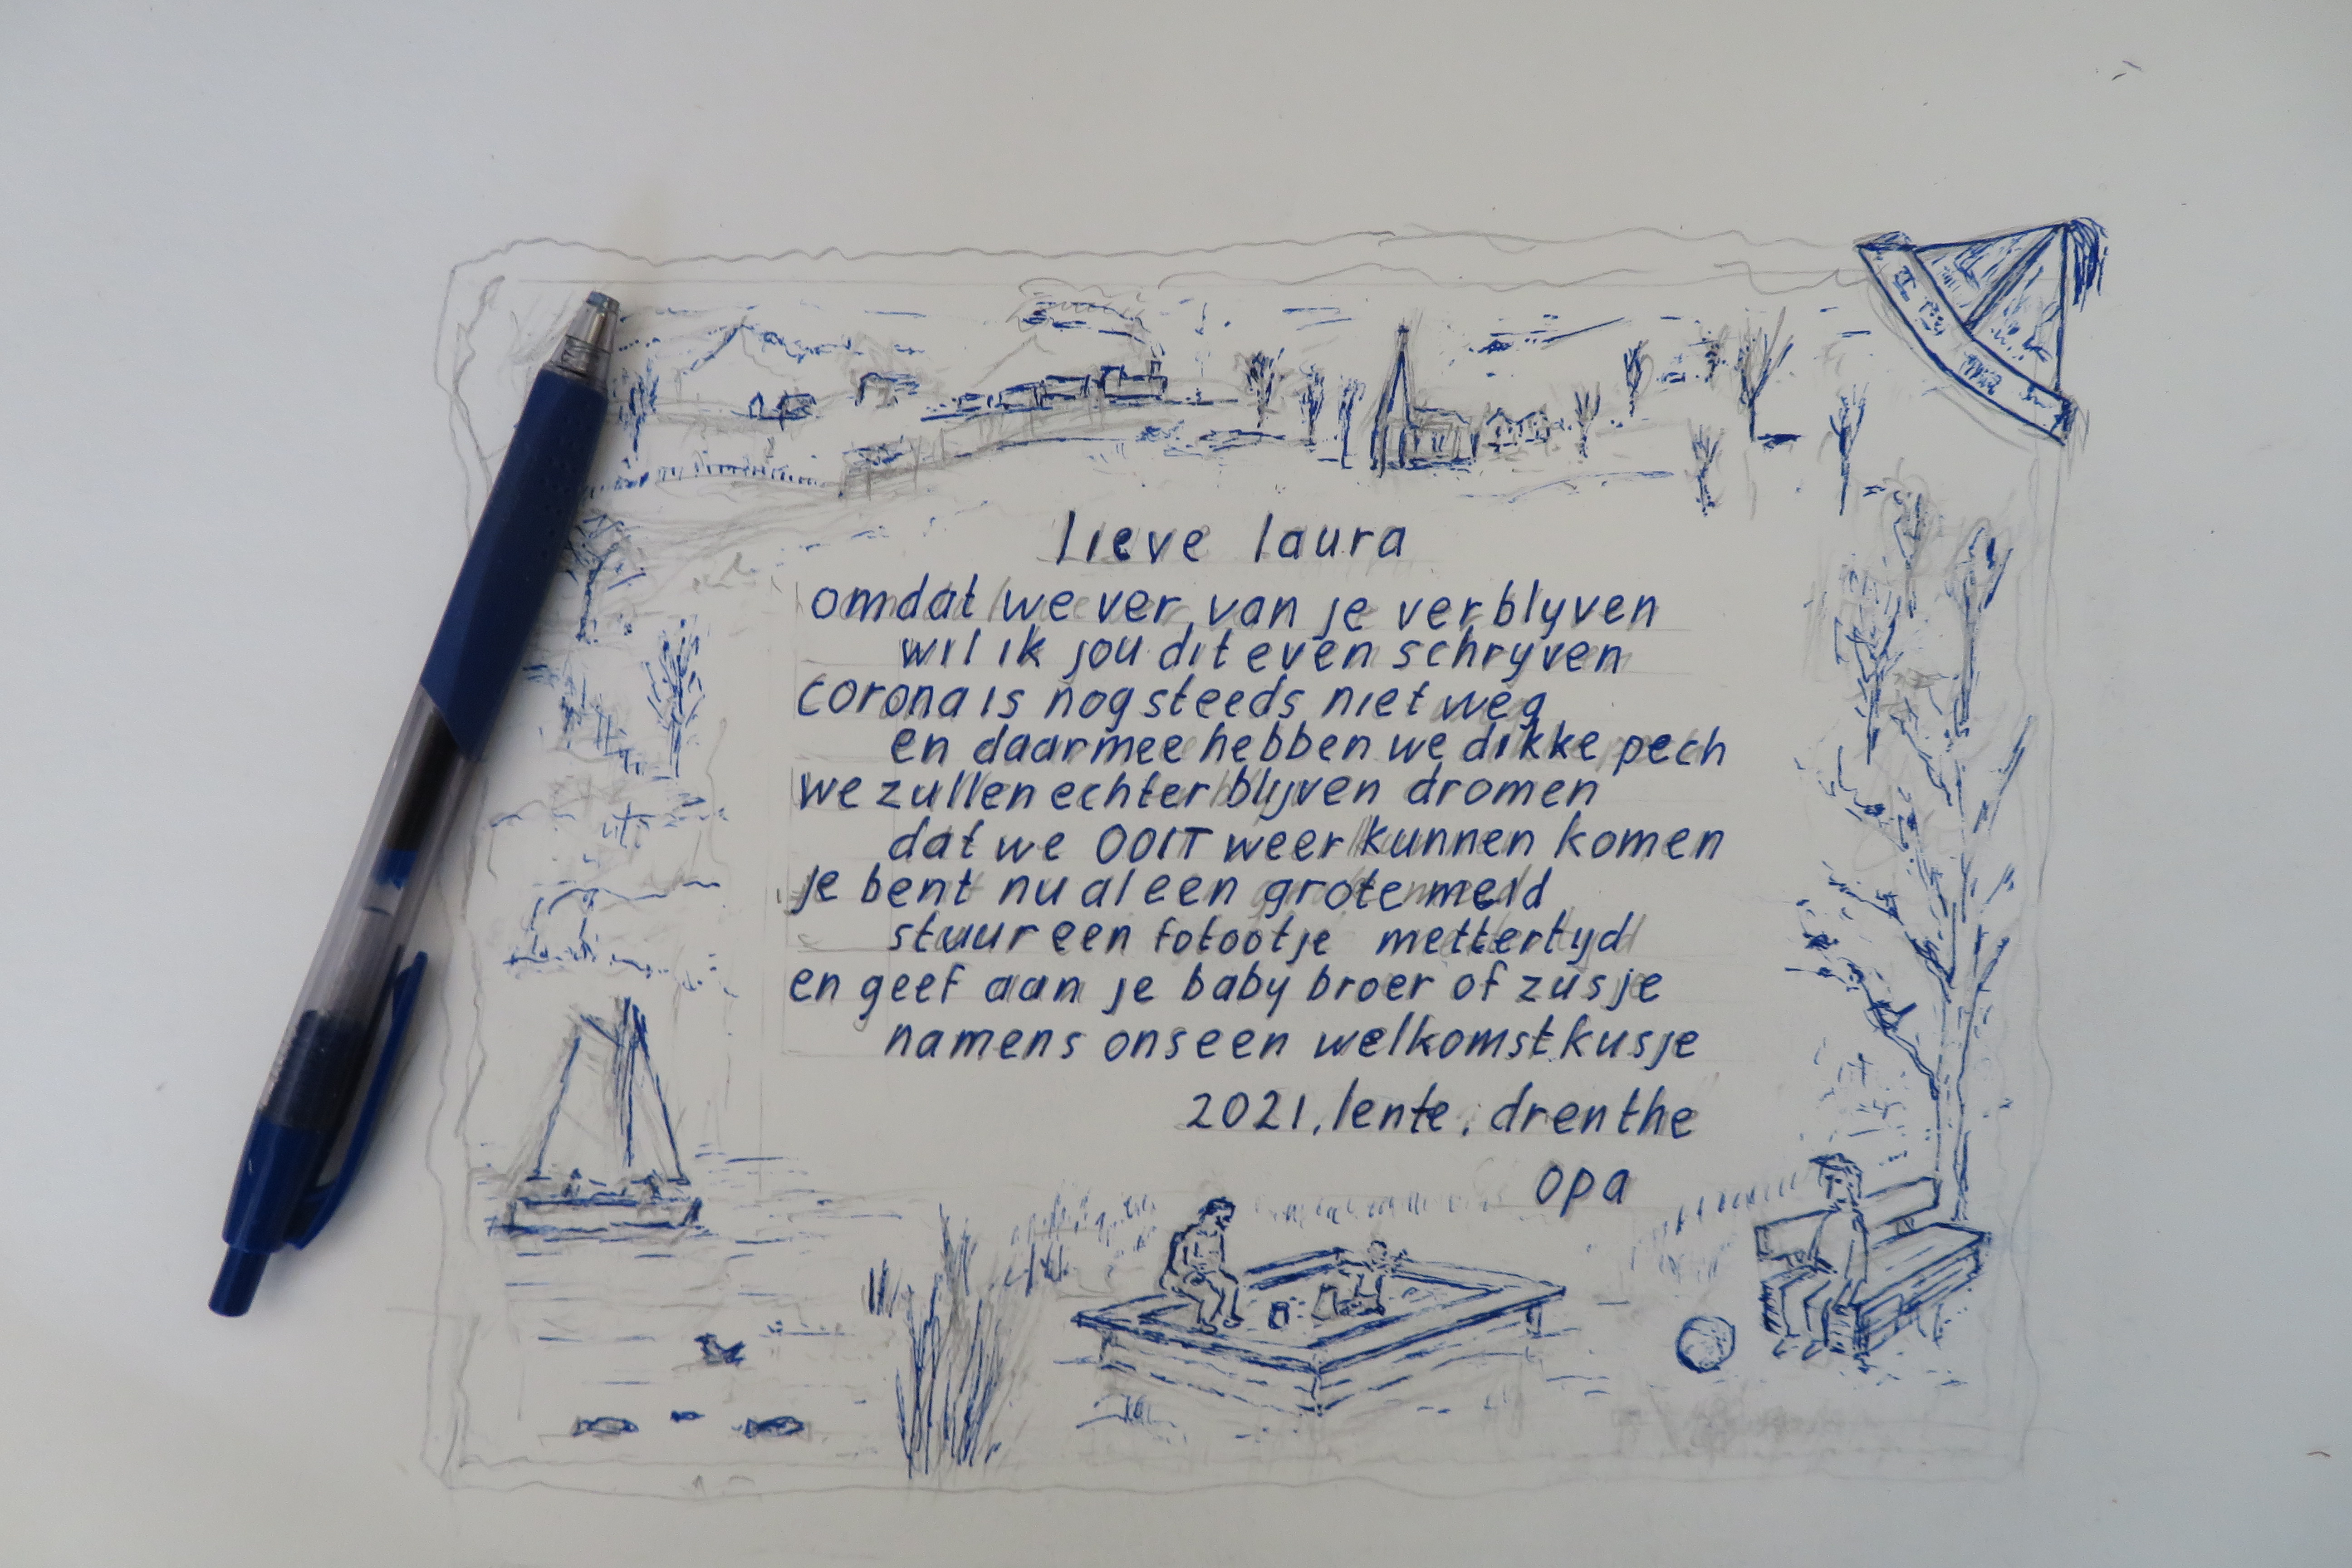 lieve laura
omdat we ver van je verblyven
wil ik jou dit even schryven
corona is nog steeds niet weg
en daarmee hebben we dikke pech
we zullen echter blijven dromen
dat we OOIT weer kunnen komen
je bent nu al een grote meid
stuur een fotootje mettertijd
en geef aan je baby broer of zusje
namens ons een welkomstkusje
2021, lente, drenthe
opa